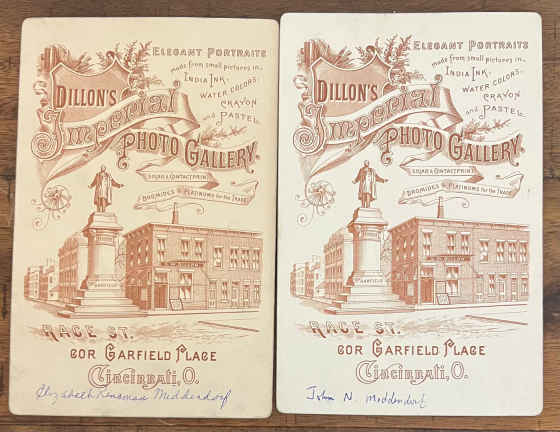 ELEGANT PORTRAITS
made from small pictures in
INDIA INK
WATER COLORS
CRAYON
and PASTEL.
DILLON'S
Imperial
PHOTO GALLERY.
SOLAR & CONTACT PRINTS
BROMIDES & PLATINUMS for the TRADE
GARFIELD
RACE ST.
COR GARFIELD PLACE
Cincinnati, O.
Elizabeth Middendorf
ELEGANT PORTRAITS
made from small pictures in
INDIA INK
WATER COLORS
CRAYON
and PASTEL.
DILLON'S
Imperial
PHOTO GALLERY.
SOLAR & CONTACT PRINTS
BROMIDES & PLATINUMS for the TRADE
GARFIELD
RACE ST.
COR GARFIELD PLACE
Cincinnati, O.
John N. Middendorf